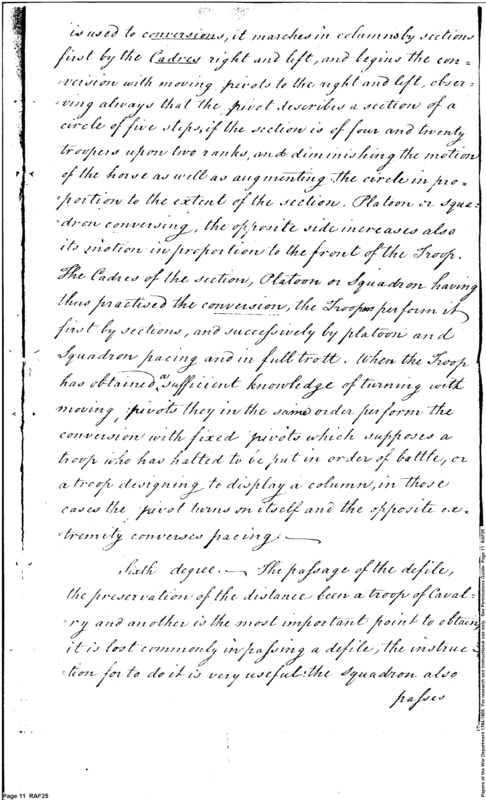 is used to conversions, it marches in columns by sections
first by the Cadres right and left, and begins the con=
=version with moving pivots to the right and left, obser=
=ving always that the pivot describes a section of a
circle of five steps, if the section is of four and twenty
troopers upon two ranks, and diminishing the motion
of the horse as well as augmenting the circle in pro=
=portion to the extent of the section. Platoon or squa=
=dron conversing, the opposite side increases also
its motion in proportion to the front of the Troop.
The Cadres of the section, Platoon or Squadron having
thus practised the conversion, the Troop perform it
first by sections, and successively by platoon and
Squadron pacing and in full trott. When the Troop
has obtained a sufficient knowledge of turning with
moving pivots they in the same order perform the
conversion with fixed pivots which supposes a
troop who has halted to be put in order of battle, or
a troop designing to display a column, in those
cases the pivot turns on itself and the opposite ex=
=tremity converses pacing. —
Sixth degree. — The passage of the defile,
the preservation of the distance been a troop of Caval=
=ry and another is the most important point to obtain,
it is lost commonly in passing a defile; the instruc=
=tion for to do it is very useful: the squadron also
passes
Page 11 RAF25
Papers of the War Department 1784-1800. For research and instructional use only. See Permissions Guide. Page 11 RAF25